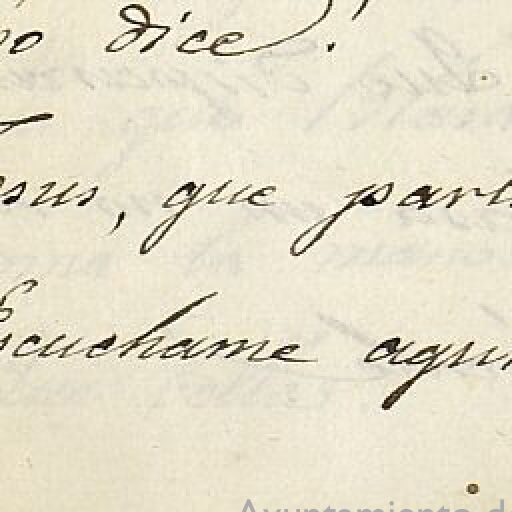 no dice!
Jesus, que part
Escuchame aqui
Ayuntamiento de